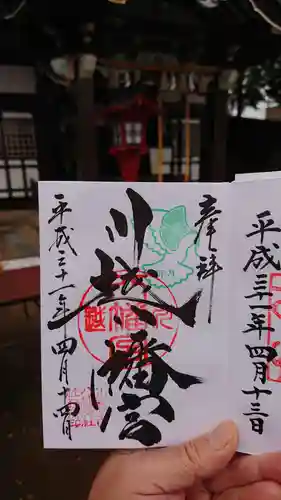 奉拝
川越八幡宮
平成三十一年四月十四日
平成三十一年四月十三日